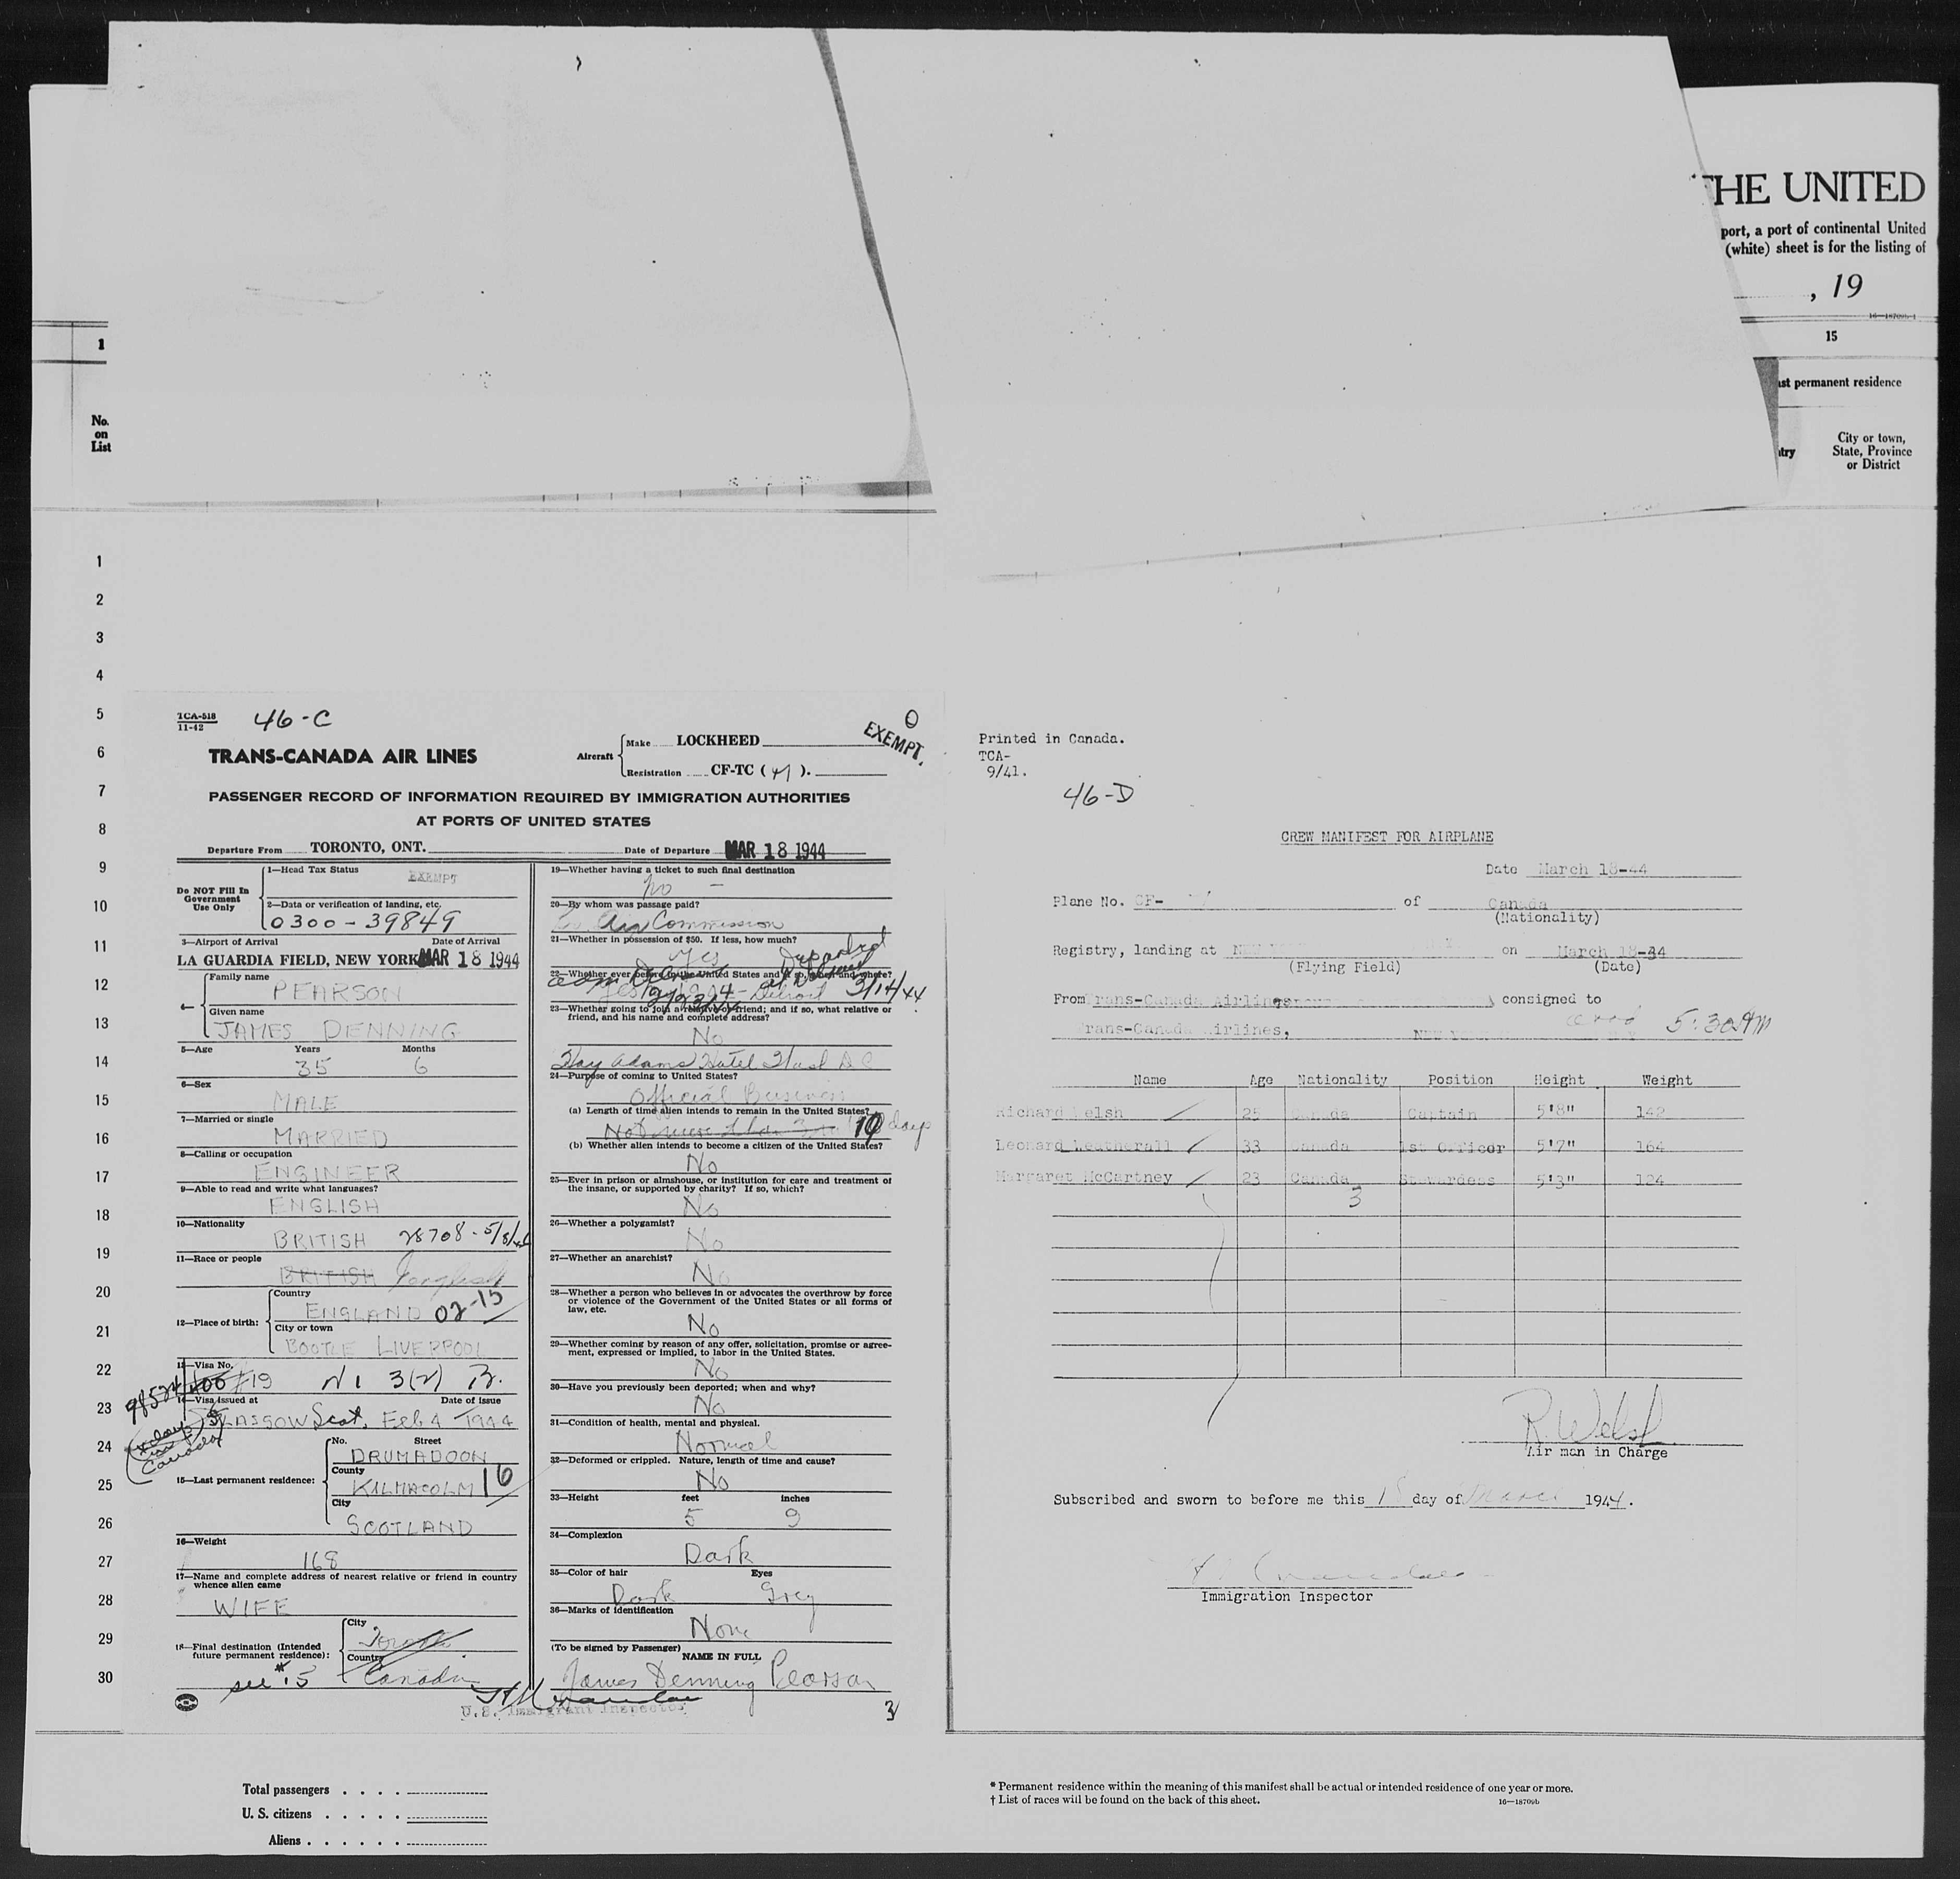 THE UNITED
port, a port of continental United
(white) sheet is for the listing of
, 19
16—18709b-1
1
15
permanent residence
No.
on
List
City or town,
State, Province
or District
1
2
3
4
5
6
7
8
9
10
11
12
13
14
15
16
17
18
19
20
21
22
23
24
25
26
27
28
29
30
TCA-518
11-42
46-C
EXEMPT.
TRANS-CANADA AIR LINES
Aircraft
Make LOCKHEED
Registration CF-TC ( 41 ).
PASSENGER RECORD OF INFORMATION REQUIRED BY IMMIGRATION AUTHORITIES
AT PORTS OF UNITED STATES
Departure From TORONTO, ONT. Date of Departure MAR 18 1944
Do NOT Fill In Government Use Only
1—Head Tax Status EXEMPT
2—Data or verification of landing, etc.
0300-39849
3—Airport of Arrival Date of Arrival
LA GUARDIA FIELD, NEW YORK MAR 18 1944
Family name
PEARSON
Given name
JAMES DENNING
5—Age Years Months
35 6
6—Sex
MALE
7—Married or single
MARRIED
8—Calling or occupation
ENGINEER
9—Able to read and write what languages?
ENGLISH
10—Nationality
BRITISH 28708-5/8/
11—Race or people
BRITISH English
12—Place of birth:
Country
ENGLAND 02-15
City or town
BOOTLE LIVERPOOL
13—Visa No.
#19 3(2) B.
14—Visa issued at Date of issue
GLASGOW Scot. Feb 4 1944
15—Last permanent residence:
No. Street
DRUMADOON
County
KILMACOLM 16
City
SCOTLAND
16—Weight
168
17—Name and complete address of nearest relative or friend in country
whence alien came
WIFE
18—Final destination (Intended
future permanent residence):
City
Toronto
Country
Canada
see #15
19—Whether having a ticket to such final destination
No -
20—By whom was passage paid?
Air Commission
21—Whether in possession of $50. If less, how much?
Yes
22—Whether ever before in the United States and if so, when and where?
Detroit 3/14/44
23—Whether going to join a relative or friend; and if so, what relative or
friend, and his name and complete address?
No
Hay Adams Hotel Wash D C
24—Purpose of coming to United States?
Official Business
(a) Length of time alien intends to remain in the United States?
Not more than 10 days
(b) Whether alien intends to become a citizen of the United States?
No
25—Ever in prison or almshouse, or institution for care and treatment of
the insane, or supported by charity? If so, which?
No
26—Whether a polygamist?
No
27—Whether an anarchist?
No
28—Whether a person who believes in or advocates the overthrow by force
or violence of the Government of the United States or all forms of
law, etc.
No
29—Whether coming by reason of any offer, solicitation, promise or agree-
ment, expressed or implied, to labor in the United States.
No
30—Have you previously been deported; when and why?
No
31—Condition of health, mental and physical.
Normal
32—Deformed or crippled. Nature, length of time and cause?
No
33—Height feet inches
5 9
34—Complexion
Dark
35—Color of hair Eyes
Dark Grey
36—Marks of identification
None
(To be signed by Passenger)
NAME IN FULL
James Denning Pearson
U.S. Immigrant Inspector
3
Printed in Canada.
TCA-
9/41.
46-D
CREW MANIFEST FOR AIRPLANE
Date March 18-44
Plane No. CF- of Canada
(Nationality)
Registry, landing at NEW on March 18-44
(Flying Field) (Date)
From Trans-Canada Airlines consigned to
Trans-Canada Airlines, 5:30 PM
Name Age Nationality Position Height Weight
Richard Welsh 25 Canada Captain 5'8" 142
Leonard Weatherall 33 Canada 1st Officer 5'7" 164
Margaret McCartney 23 Canada Stewardess 5'3" 124
3
R. Welsh
Air man in Charge
Subscribed and sworn to before me this 18 day of March 1944.
Immigration Inspector
Total passengers . . . .
U. S. citizens . . . . .
Aliens . . . . . .
* Permanent residence within the meaning of this manifest shall be actual or intended residence of one year or more.
† List of races will be found on the back of this sheet.
16—18709b